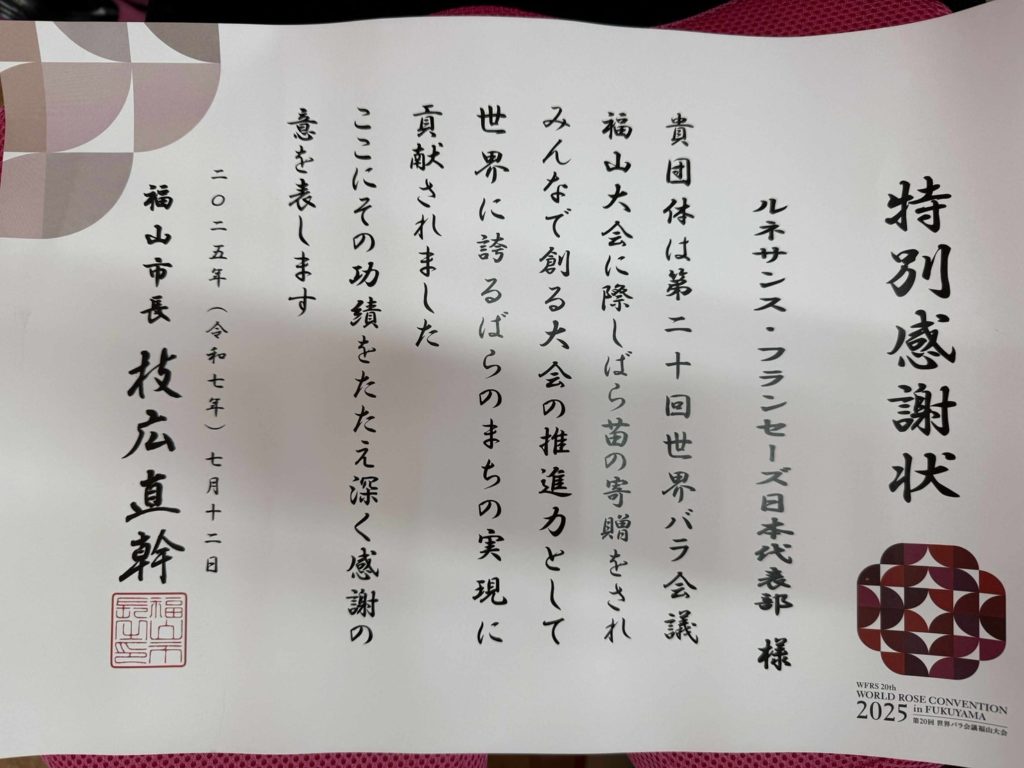 特別感謝状
ルネサンス・フランセーズ日本代表部 様
貴団体は第二十回世界バラ会議
福山大会に際しばら苗の寄贈をされ
みんなで創る大会の推進力として
世界に誇るばらのまちの実現に
貢献されました
ここにその功績をたたえ深く感謝の
意を表します
二〇二五年（令和七年）七月十二日
福山市長 枝広直幹
福山市長之印
WFRS 20th
WORLD ROSE CONVENTION
2025 in FUKUYAMA
第20回 世界バラ会議福山大会